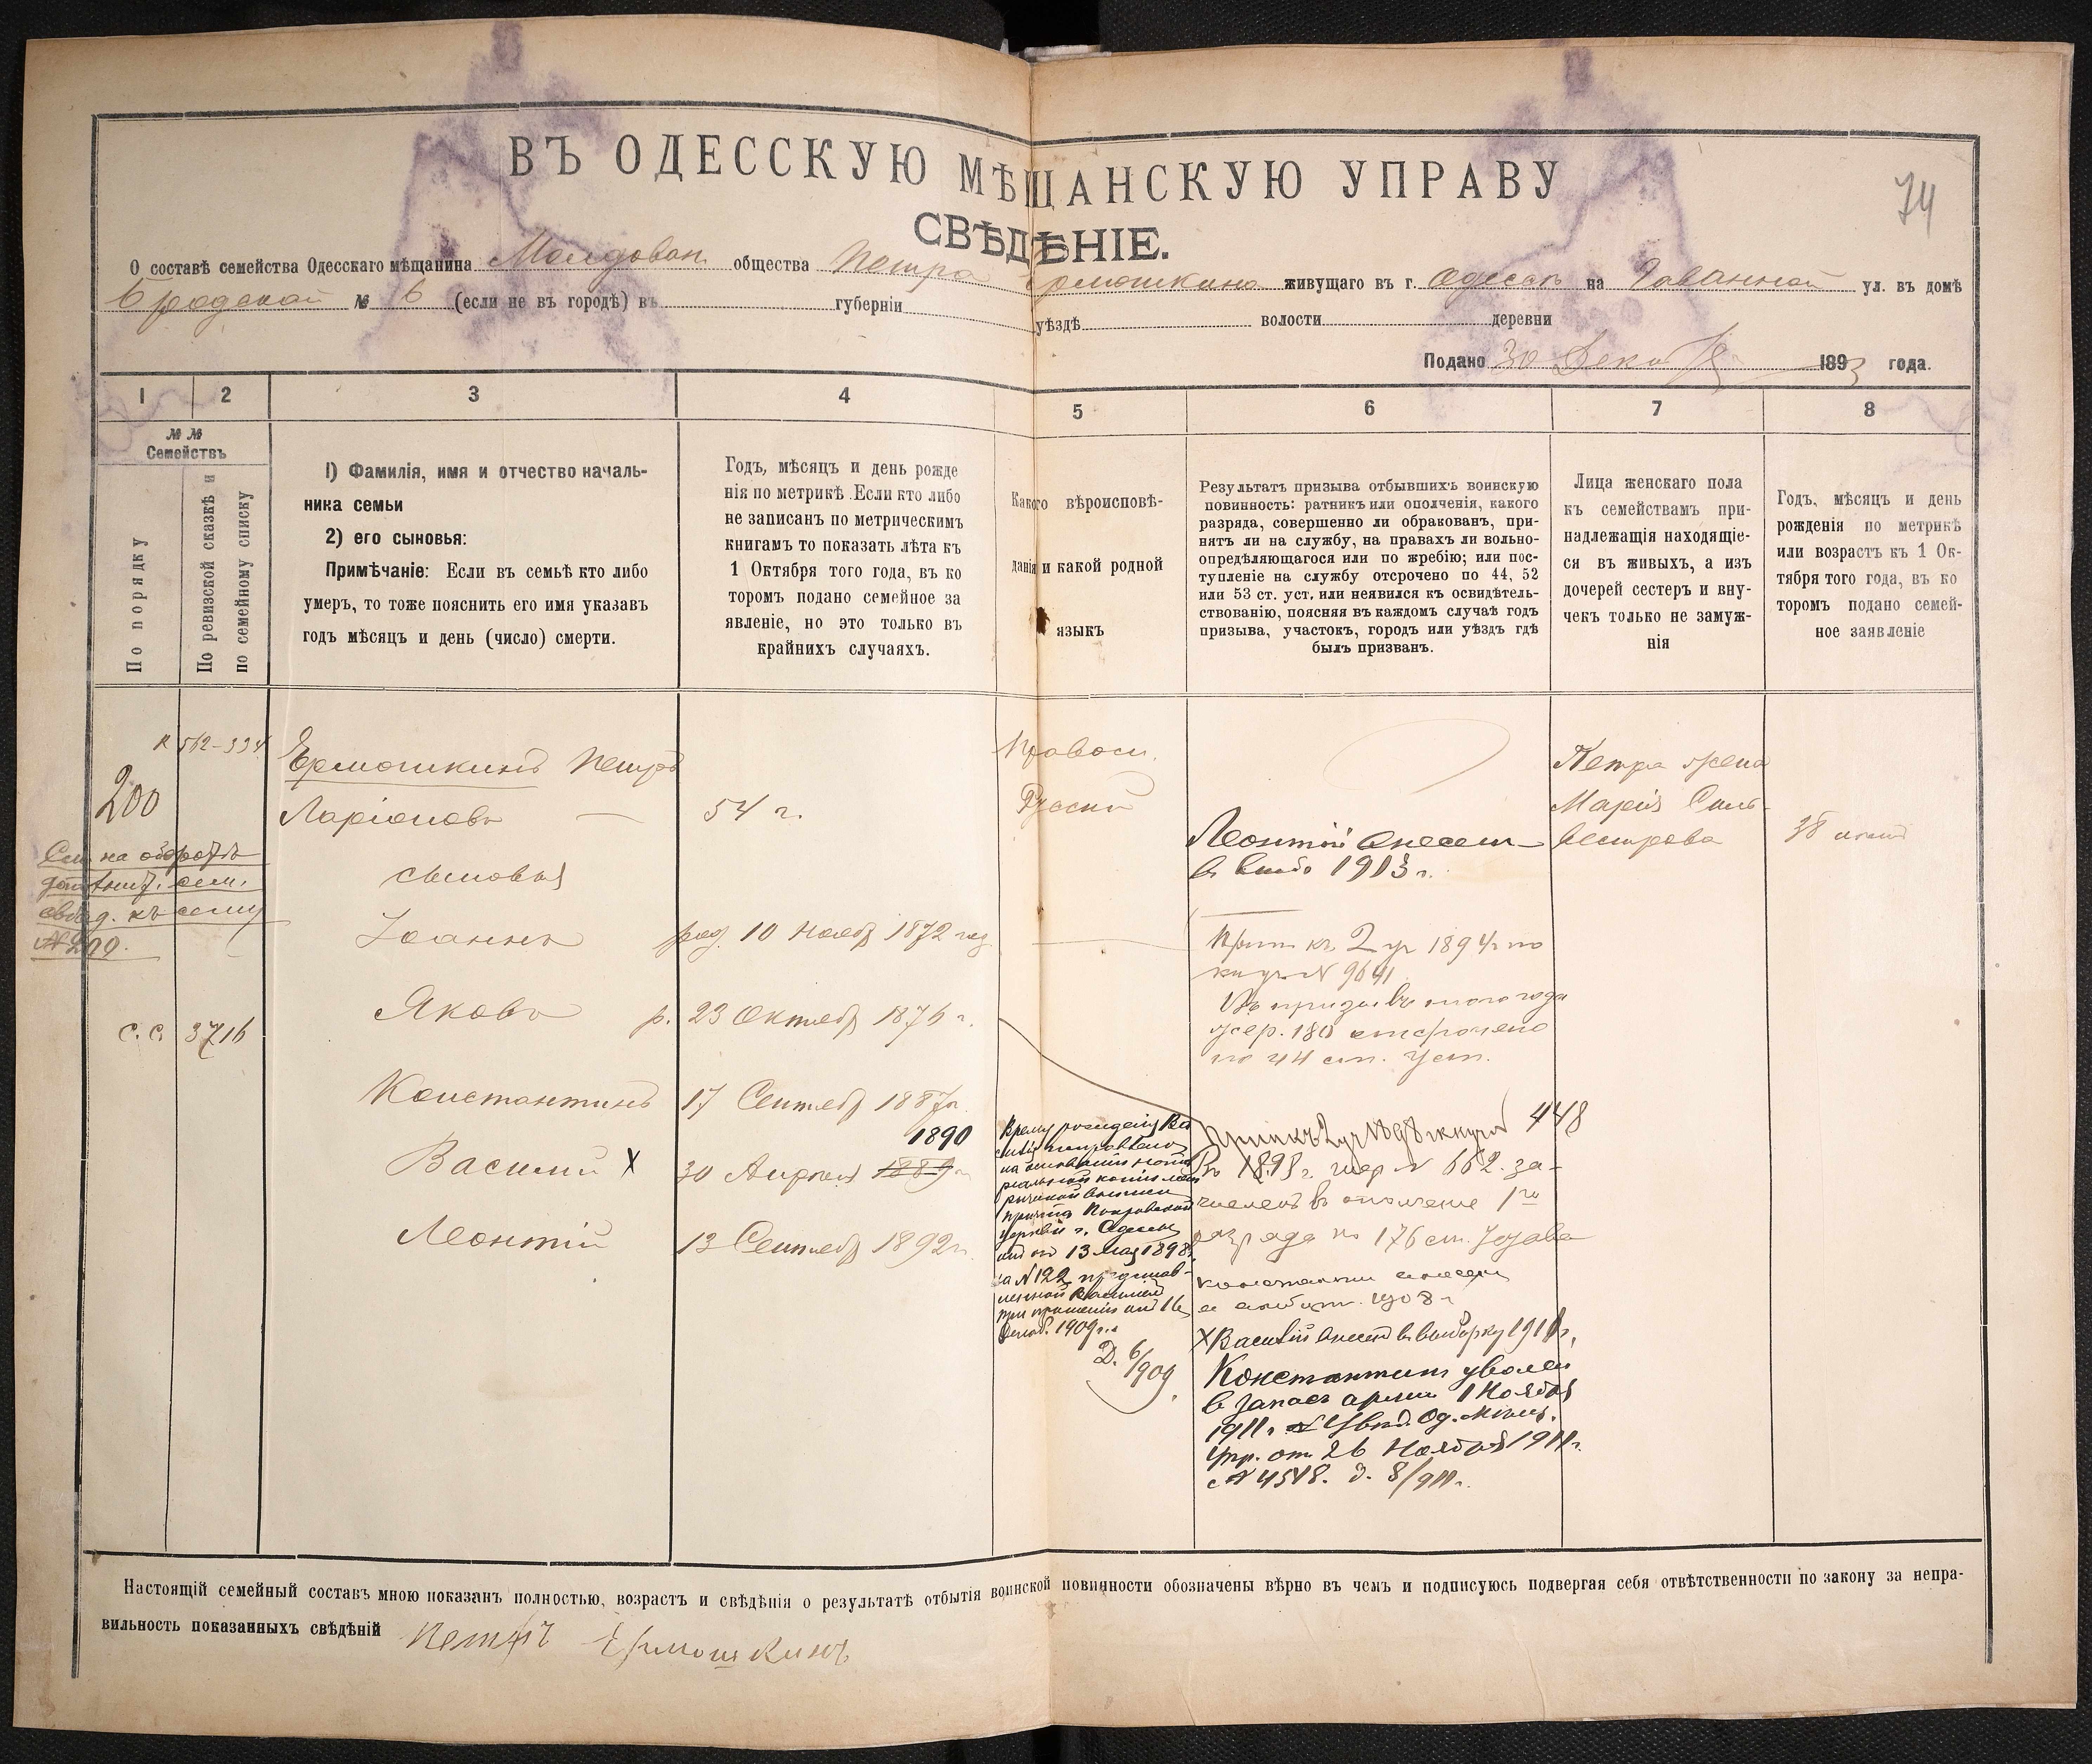 74
ВЪ ОДЕССКУЮ МѢЩАНСКУЮ УПРАВУ
СВѢДѢНІЕ.
О составѣ семейства Одесскаго мѣщанина Молдован общества Петра Ермошкина живущаго въ г. Одессѣ на Гаванной ул. въ домѣ
Бродской № 6 (если не въ городѣ) въ губерніи уѣздѣ волости деревни
Подано 30 Декабр 1893 года.
1 2 3 4 5 6 7 8
№ №
Семействъ
По порядку
По ревизской сказкѣ и
по семейному списку
1) Фамилія, имя и отчество началь-
ника семьи
2) его сыновья:
Примѣчаніе: Если въ семьѣ кто либо
умеръ, то тоже пояснить его имя указавъ
годъ мѣсяцъ и день (число) смерти.
Годъ, мѣсяцъ и день рожде
нія по метрикѣ. Если кто либо
не записанъ по метрическимъ
книгамъ то показать лѣта къ
1 Октября того года, въ ко
торомъ подано семейное за
явленіе, но это только въ
крайнихъ случаяхъ.
Какого вѣроисповѣ-
данія и какой родной
языкъ
Результатъ призыва отбывшихъ воинскую
повинность: ратникъ или ополченія, какого
разряда, совершенно ли обракованъ, при-
нятъ ли на службу, на правахъ ли вольно-
опредѣляющагося или по жребію; или пос-
тупленіе на службу отсрочено по 44, 52
или 53 ст. уст. или неявился къ освидѣтель-
ствованію, поясняя въ каждомъ случаѣ годъ
призыва, участокъ, городъ или уѣздъ гдѣ
былъ призванъ.
Лица женскаго пола
къ семействамъ при-
надлежащія находящіе-
ся въ живыхъ, а изъ
дочерей сестеръ и вну-
чекъ только не замуж-
нія
Годъ, мѣсяцъ и день
рожденія по метрикѣ
или возрастъ къ 1 Ок-
тября того года, въ ко
торомъ подано семей-
ное заявленіе
200
См. на оборотѣ
№ 200.
С. С. 3716
Ермошкинъ Петръ
Ларіоновъ — 54 г.
сыновья
Іоаннъ род. 10 Нояб 1872 год
Яковъ р. 23 Октяб 1876 г.
Константинъ 17 Сентяб 1887 г.
1890
Василій X 30 Апреля 1889 г.
Леонтій 13 Сентяб 1892 г.
Правосл.
Русскій
Время рожденія Ва
силія исправлено
на основаніи нота
ріальной копіи мет
рической выписи
причта Покровской
церкви г. Одессы
отъ 13 Мая 1898
за № 122 представ-
ленной Василіем
при прошеніи от 16
1909 г.
Д. 6/909.
Леонтій внесен
в 1913 г.
Прип къ 2 уч 1894 г по
№ 9641
Въ призывъ того года
жер. 180 отсрочено
по 44 ст. Уст.
448
Въ 1898 г. жер № 662. за-
численъ въ ополченіе 1го
разряда по 176 ст. Устава
1908 г
X Василій внесен в выборку 1911 г.
Константин уволен
в запас арміи 1 Ноября
1911 г. Од. Мѣщ.
Упр. от 26 Ноября 1911 г.
№ 4548. д. 8/911 г.
Петра жена
Марія Силь-
вестрова
38 лѣтъ
Настоящій семейный составъ мною показанъ полностью, возрастъ и свѣдѣнія о результатѣ отбытія воинской повинности обозначены вѣрно въ чемъ и подписуюсь подвергая себя отвѣтственности по закону за непра-
вильность показанныхъ свѣдѣній Петръ Ермошкинъ